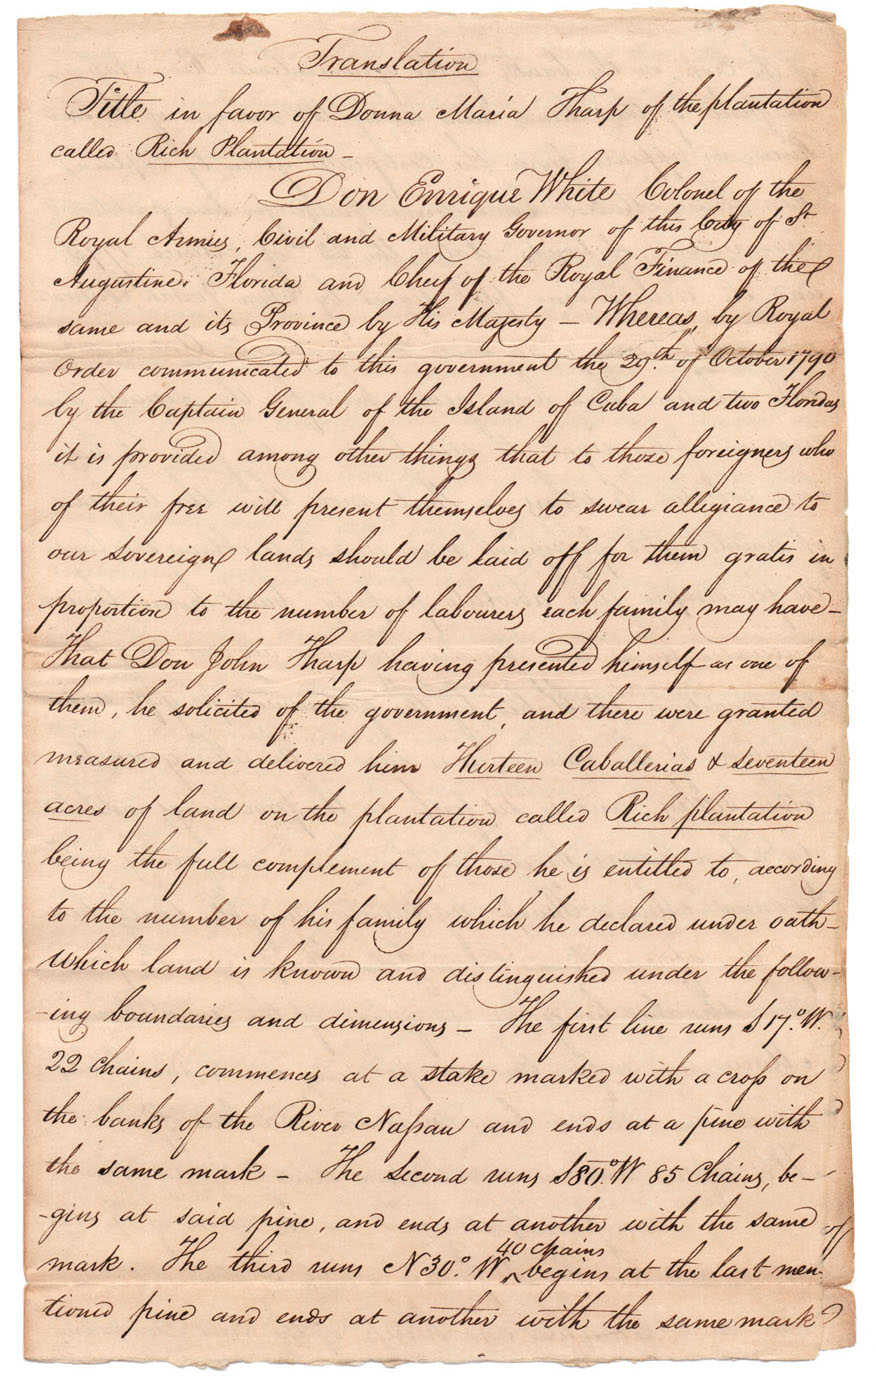 Translation
Title in favor of Donna Maria Tharp of the plantation
called Rich Plantation –
Don Enrique White Colonel of the
Royal Armies, Civil and Military Governor of this City of St.
Augustine, Florida and Cheif of the Royal Finance of the
same and its Province by His Majesty – Whereas, by Royal
Order communicated to this government the 29th. of October 1790
by the Captain General of the Island of Cuba and two Floridas
it is provided among other things that to those foreigners who
of their free will present themselves to swear allegiance to
our Sovereign lands should be laid off for them gratis in
proportion to the number of labourers each family may have –
That Don John Tharp having presented himself as one of
them, he solicited of the government, and there were granted
measured and delivered him Thirteen Caballerias & seventeen
acres of land on the plantation called Rich plantation
being the full complement of those he is entitled to, according
to the number of his family which he declared under oath –
Which land is known and distinguished under the follow-
-ing boundaries and dimensions – The first line runs S 17.° W.
22 Chains, commences at a stake marked with a cross on
the banks of the River Nassau and ends at a pine with
the same mark – The Second runs S 80.° W 85 Chains, be-
-gins at said pine, and ends at another with the same
mark. The third runs N 30.° W. 40 chains begins at the last men-
tioned pine and ends at another with the same mark